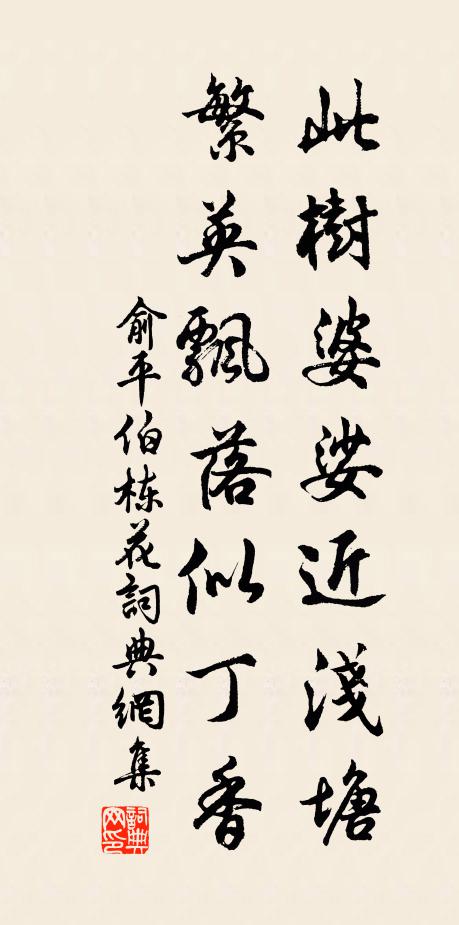 此樹婆娑近淺塘
繁英飄落似丁香
俞平伯栋花詞典網集
詞典
网印